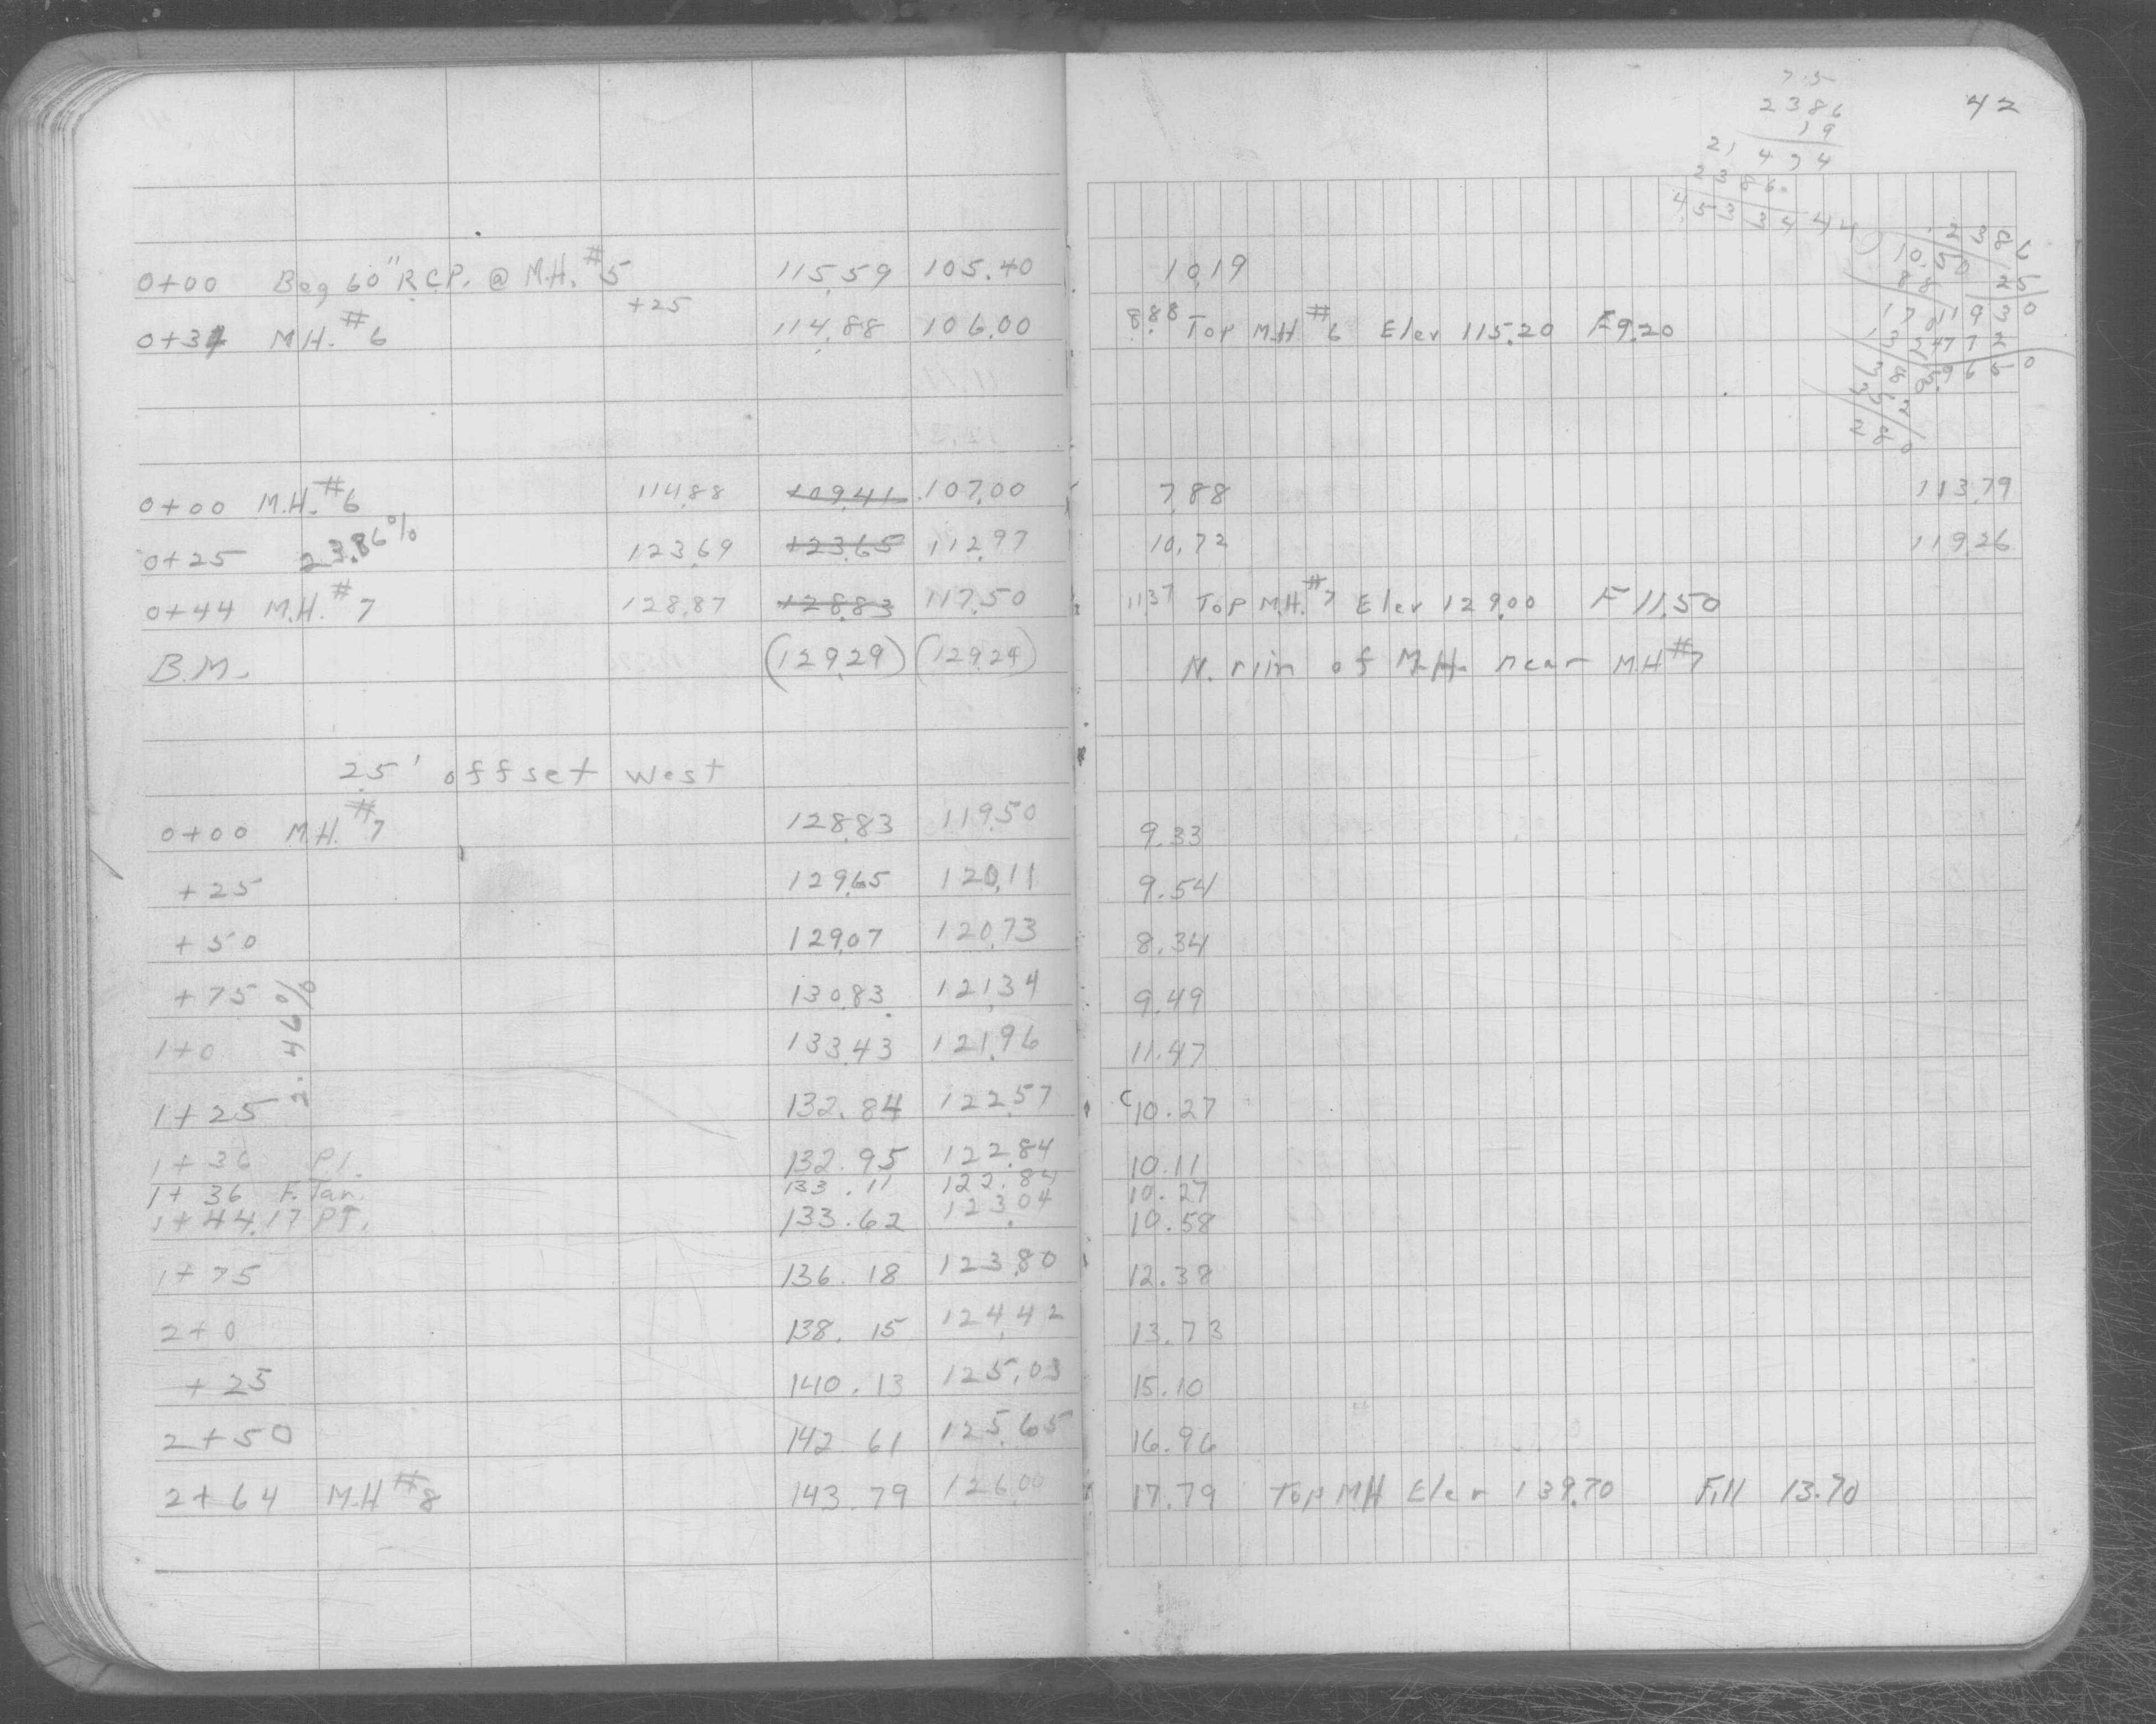 42
7.5
2386
19
0+00 Beg 60" R.C.P. @ M.H. #5 115.59 105.40 10.19
+25
0+34 M.H. #6 114.88 106.00 8.88 Top M.H. #6 Elev 115.20 F 9.20
0+00 M.H. #6 114.88 109.41 107.00 7.88 113.79
0+25 23.86% 123.69 123.65 112.97 10.72 119.26
0+44 M.H. #7 128.87 128.83 117.50 11.37 Top M.H. #7 Elev 129.00 F 11.50
B.M. (129.29) (129.29) N. rim of M.H. near MH #7
25' offset west
0+00 M.H. #7 128.83 119.50 9.33
+25 129.65 120.11 9.54
+50 129.07 120.73 8.34
+75 130.83 121.34 9.49
2.46%
1+0 133.43 121.96 11.47
1+25 132.84 122.57 C 10.27
1+36 P.I. 132.95 122.84 10.11
1+36 F. Tan. 133.11 122.84 10.27
1+44.17 P.T. 133.62 123.04 10.58
1+75 136.18 123.80 12.38
2+0 138.15 124.42 13.73
+25 140.13 125.03 15.10
2+50 142.61 125.65 16.96
2+64 M.H #8 143.79 126.00 17.79 Top MH Elev 139.70 Fill 13.70